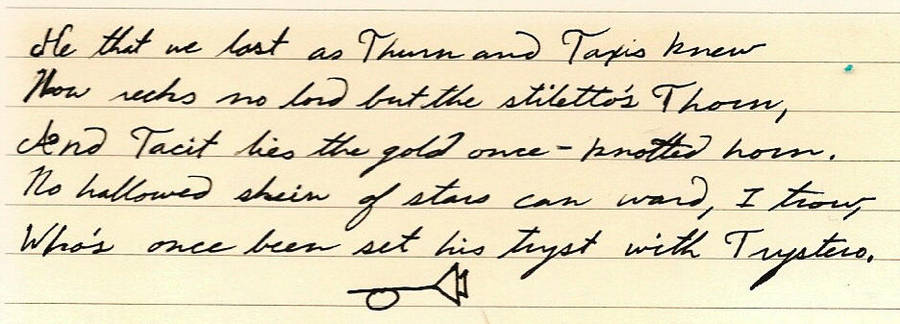 He that we last as Thurn and Taxis knew
Now recks no lord but the stiletto's Thorn,
And Tacit lies the gold once-knotted horn.
No hallowed skein of stars can ward, I trow,
Who's once been set his tryst with Trystero.